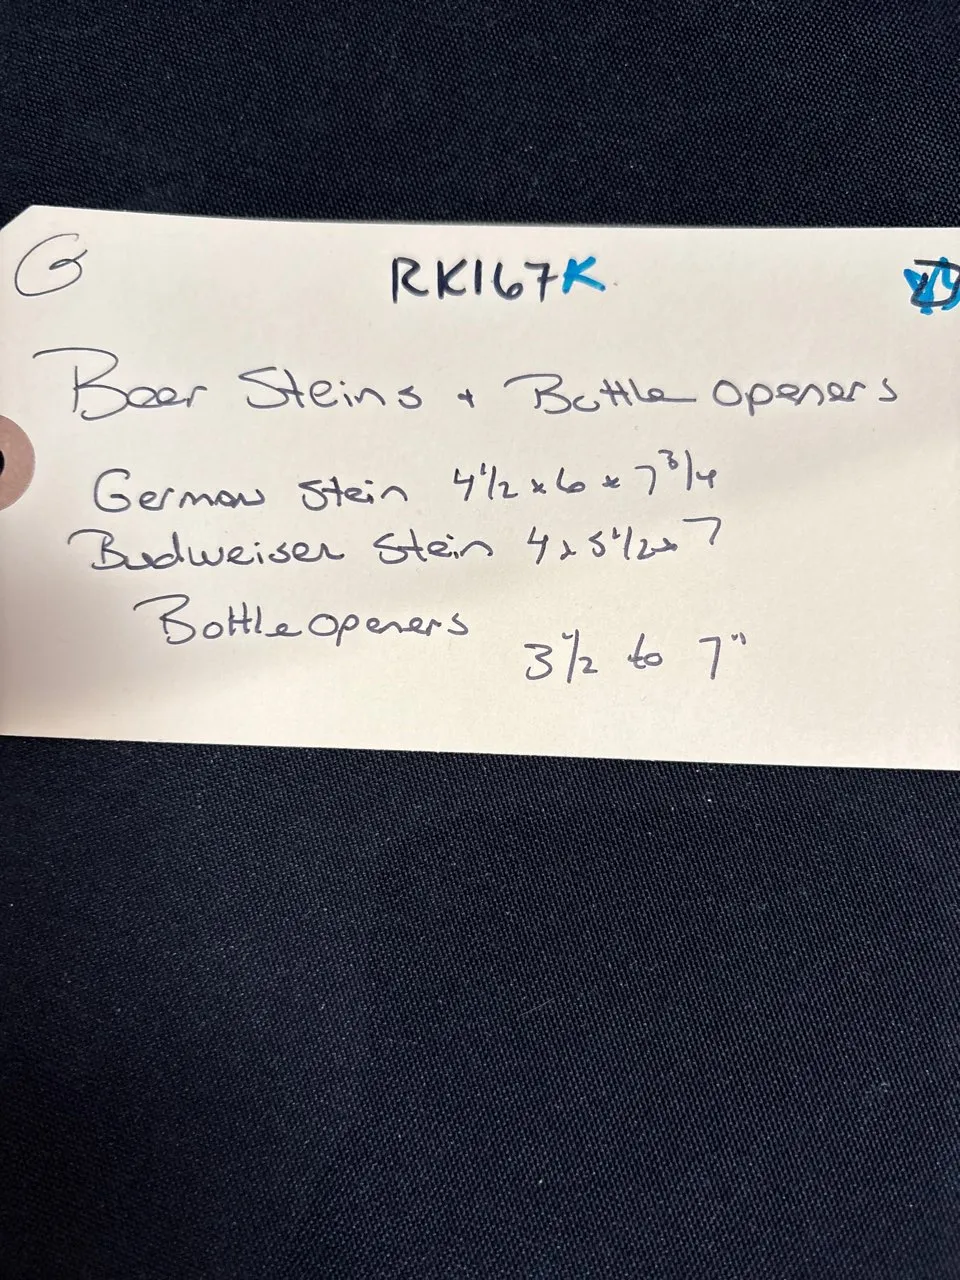 G RK167K
Beer Steins + Bottle openers
German Stein 4 1/2 x 6 x 7 3/4
Budweiser Stein 4 x 5 1/2 x 7
Bottle openers
3 1/2 to 7"